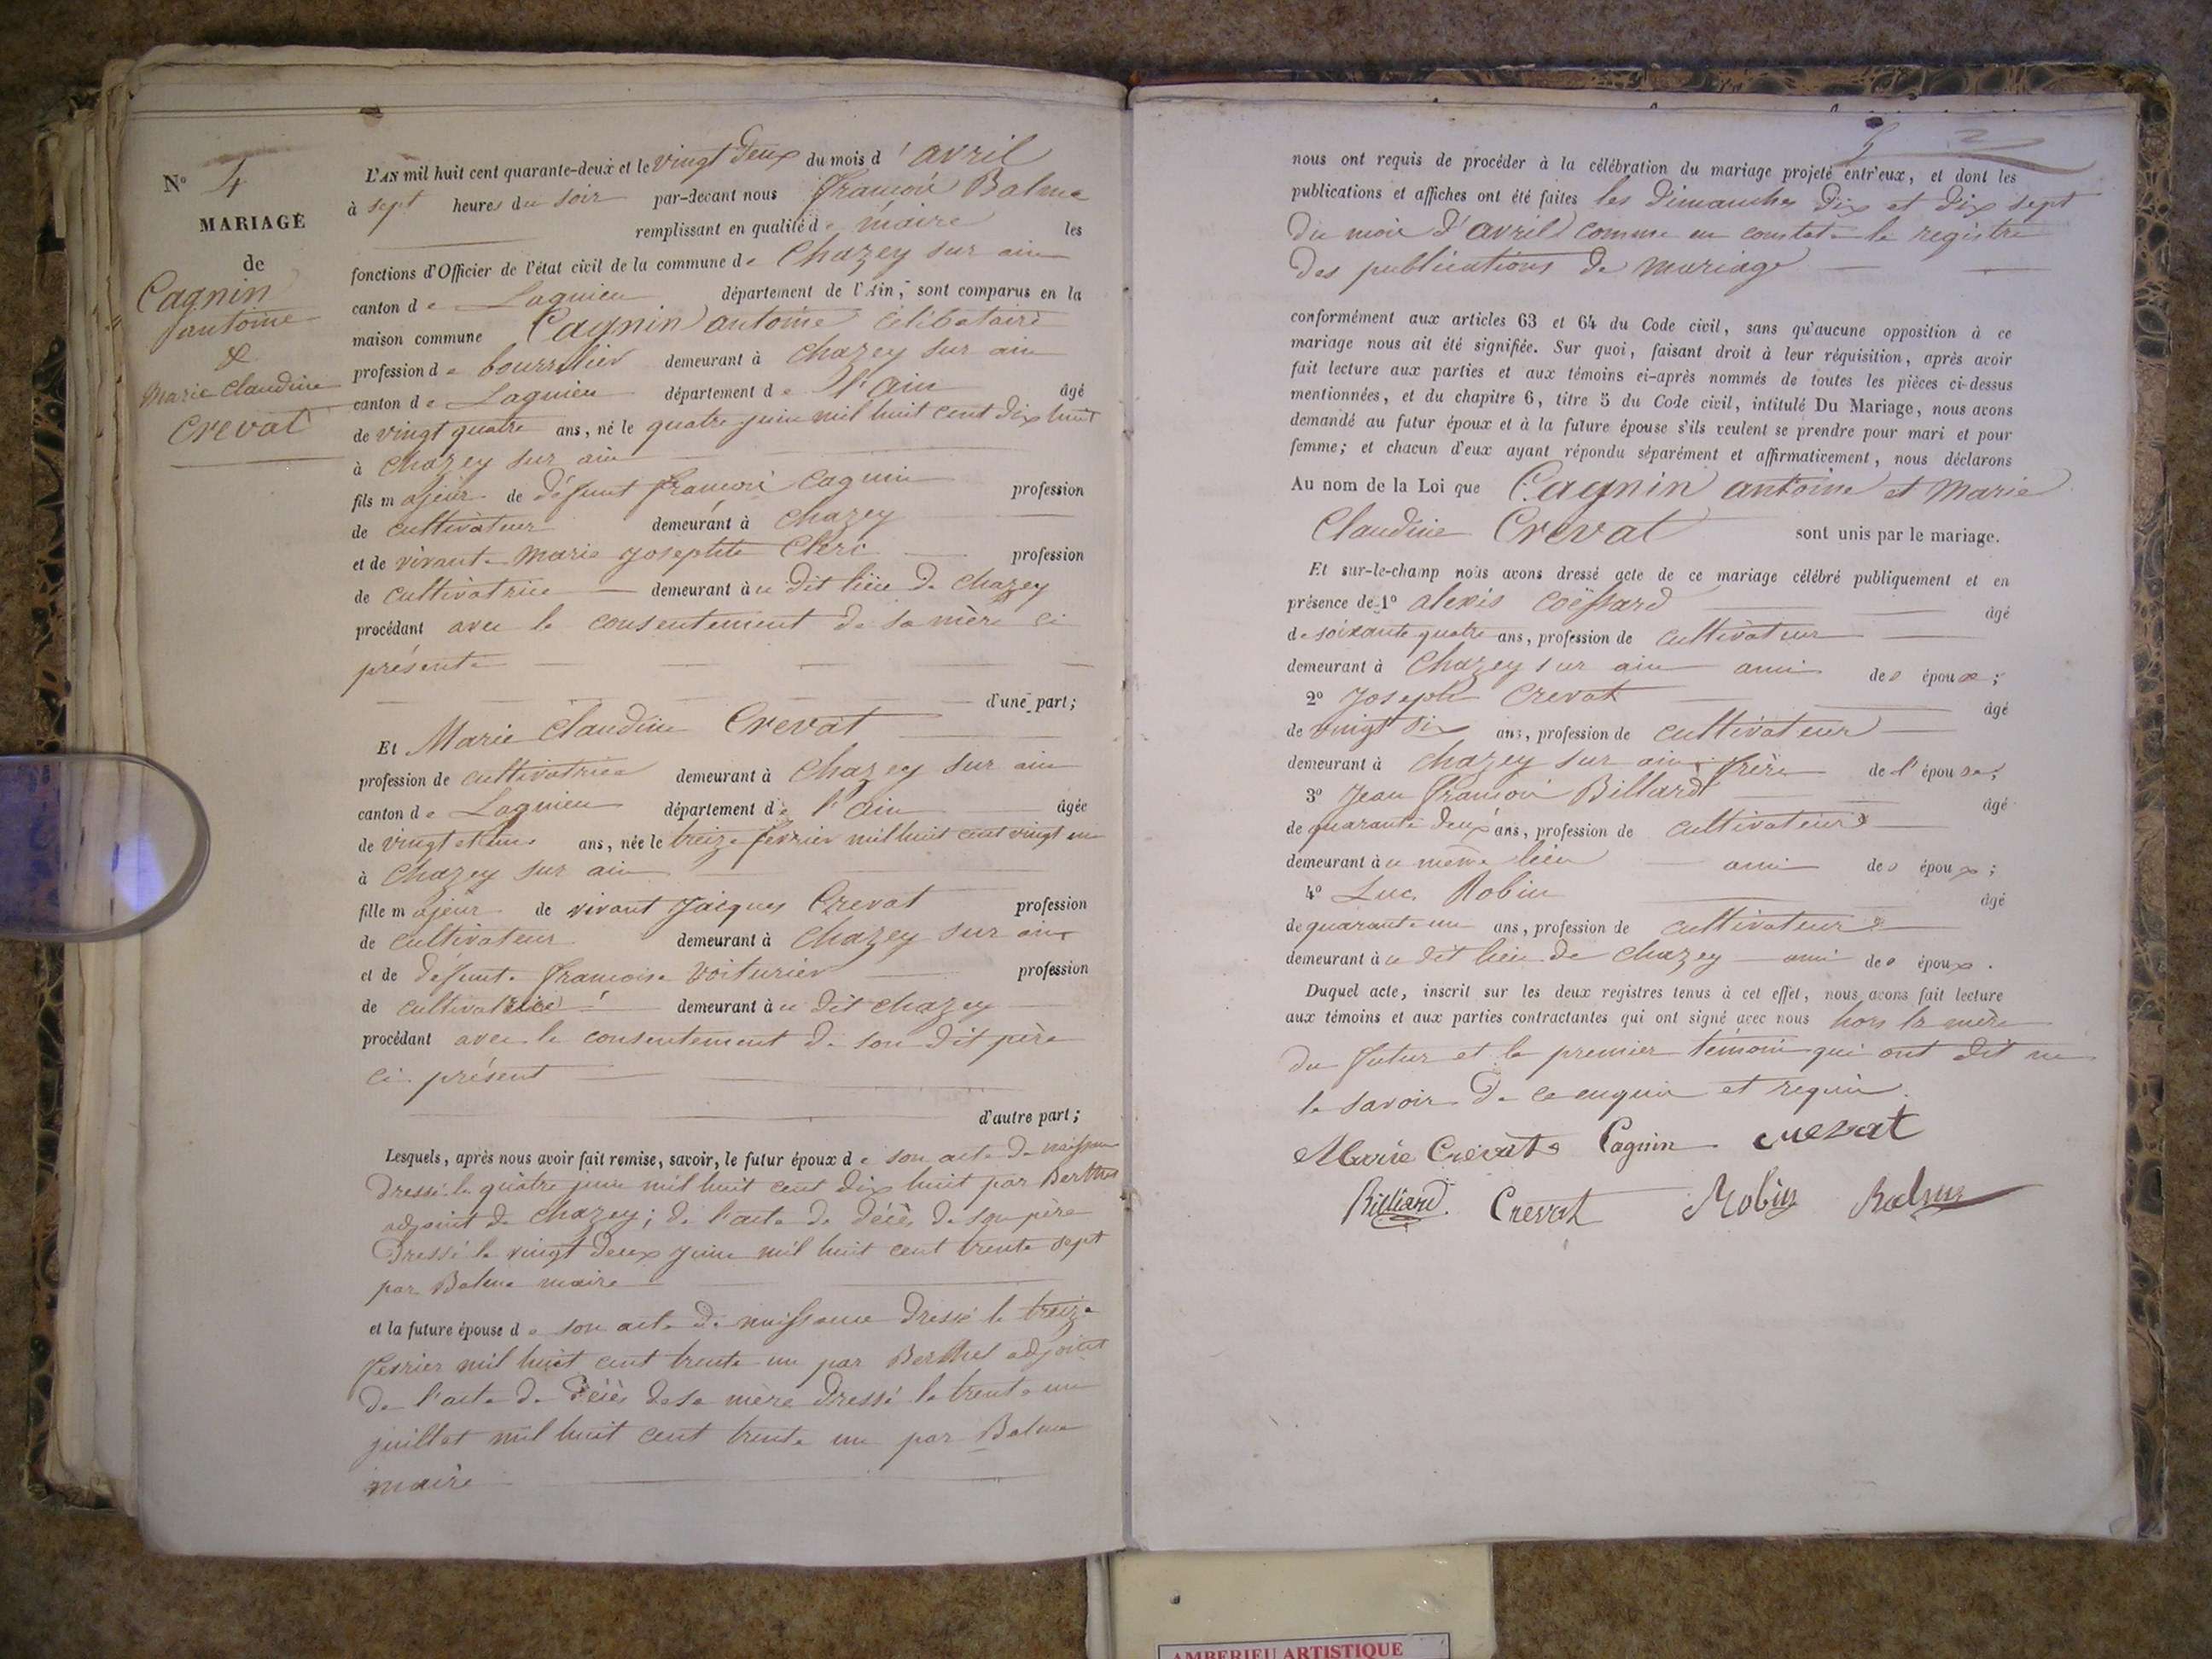 N° 4
MARIAGE
de
Cagnin
antoine
&
Marie Claudine
Crevat
L'AN mil huit cent quarante-deux et le vingt deux du mois d'avril
à sept heures du soir par-devant nous françois Balme
remplissant en qualité de maire les
fonctions d'Officier de l'état civil de la commune de Chazey sur ain
canton de Lagnieu département de l'Ain, sont comparus en la
maison commune Cagnin antoine célibataire
profession de bourrelier demeurant à Chazey sur ain
canton de Lagnieu département de l'ain âgé
de vingt quatre ans, né le quatre juin mil huit cent dix huit
à Chazey sur ain
fils majeur de défunt françois Cagnin profession
de cultivateur demeurant à Chazey
et de vivante Marie Josephte Cleri profession
de cultivatrice demeurant à ce dit lieu de Chazey
procédant avec le consentement de sa mère ci
présente
d'une part;
Et Marie Claudine Crevat
profession de cultivatrice demeurant à Chazey sur ain
canton de Lagnieu département de l'ain âgée
de vingt et un ans, née le treize fevrier mil huit cent vingt un
à Chazey sur ain
fille majeur de vivant Jacques Crevat profession
de cultivateur demeurant à Chazey sur ain
et de défunte francoise Voiturier profession
de cultivatrice demeurant à ce dit chazey
procédant avec le consentement de son dit père
ci présent
d'autre part;
Lesquels, après nous avoir fait remise, savoir, le futur époux de son acte de
dressé le quatre juin mil huit cent dix huit par Berthet
adjoint de Chazey; de l'acte de décès de son père
dressé le vingt deux juin mil huit cent trente sept
par Balme maire
et la future épouse de son acte de naissance dressé le treize
fevrier mil huit cent trente un par Berthet adjoint
de l'acte de décès de sa mère dressé le trente un
juillet mil huit cent trente un par Balme
maire
nous ont requis de procéder à la célébration du mariage projeté entr'eux, et dont les
publications et affiches ont été faites les dimanches dix et dix sept
du mois d'avril comme en constate le registre
des publications de mariage
conformément aux articles 63 et 64 du Code civil, sans qu'aucune opposition à ce
mariage nous ait été signifiée. Sur quoi, faisant droit à leur réquisition, après avoir
fait lecture aux parties et aux témoins ci-après nommés de toutes les pièces ci-dessus
mentionnées, et du chapitre 6, titre 5 du Code civil, intitulé Du Mariage, nous avons
demandé au futur époux et à la future épouse s'ils veulent se prendre pour mari et pour
femme; et chacun d'eux ayant répondu séparément et affirmativement, nous déclarons
Au nom de la Loi que Cagnin antoine et Marie
Claudine Crevat sont unis par le mariage.
Et sur-le-champ nous avons dressé acte de ce mariage célébré publiquement et en
présence de 1° alexis Coëssard âgé
de soixante quatre ans, profession de cultivateur
demeurant à Chazey sur ain ami des époux;
2° Joseph Crevat âgé
de vingt six ans, profession de cultivateur
demeurant à chazey sur ain frère de l'épouse;
3° Jean françois Billard âgé
de quarante deux ans, profession de cultivateur
demeurant à ce même lieu ami des époux;
4° Luc Robin âgé
de quarante un ans, profession de cultivateur
demeurant à ce dit lieu de chazey ami des époux.
Duquel acte, inscrit sur les deux registres tenus à cet effet, nous avons fait lecture
aux témoins et aux parties contractantes qui ont signé avec nous hors la mère
du futur et le premier témoin qui ont dit ne
le savoir de ce enquis et requis.
Marie Crevat Cagnin Crevat
Billiard Crevat Robin Balme
AMBERIEU ARTISTIQUE